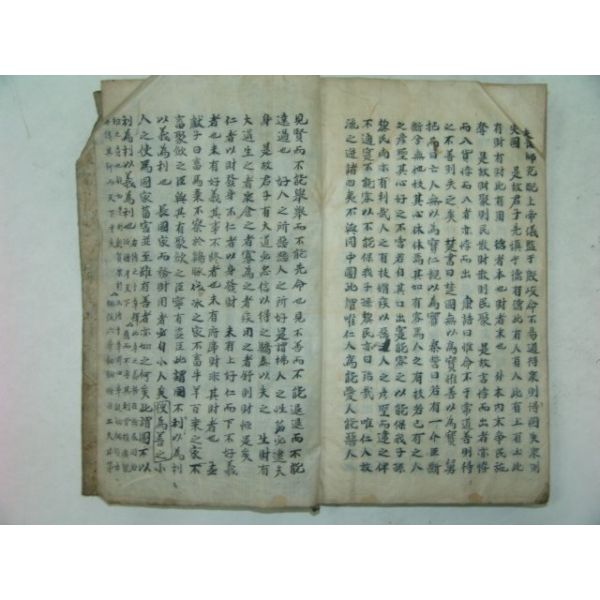 未喪師克配上帝儀監于殷峻命不易道得衆則得國失衆則
失國 是故君子先慎乎德有德此有人有人此有土有土此
有財有財此有用 德者本也財者末也 外本內末爭民施
奪 是故財聚則民散財散則民聚 是故言悖而出者亦悖
而入貨悖而入者亦悖而出 康誥曰惟命不于常道善則得
之不善則失之矣 楚書曰楚國無以爲寶惟善以爲寶 舅
犯曰亡人無以爲寶仁親以爲寶 秦誓曰若有一介臣斷
斷兮無他技其心休休焉其如有容焉人之有技若己有之人
之彦聖其心好之不啻若自其口出寔能容之以能保我子孫
黎民尚亦有利哉人之有技媢疾以惡之人之彦聖而違之俾
不通寔不能容以不能保我子孫黎民亦曰殆哉 唯仁人放
流之迸諸四夷不與同中國此謂唯仁人爲能愛人能惡人
見賢而不能舉舉而不能先命也見不善而不能退退而不能
遠過也 好人之所惡惡人之所好是謂拂人之性菑必逮夫
身 是故君子有大道必忠信以得之驕泰以失之 生財有
大道生之者衆食之者寡爲之者疾用之者舒則財恒足矣
仁者以財發身不仁者以身發財 未有上好仁而下不好義
者也未有好義其事不終者也未有府庫財非其財者也 孟
獻子曰畜馬乘不察於鷄豚伐冰之家不畜牛羊百乘之家不
畜聚斂之臣與其有聚斂之臣寧有盜臣此謂國不以利爲利
以義爲利也 長國家而務財用者必自小人矣彼爲善之小
人之使爲國家菑害並至雖有善者亦如之何矣此謂國不以
利爲利以義爲利也